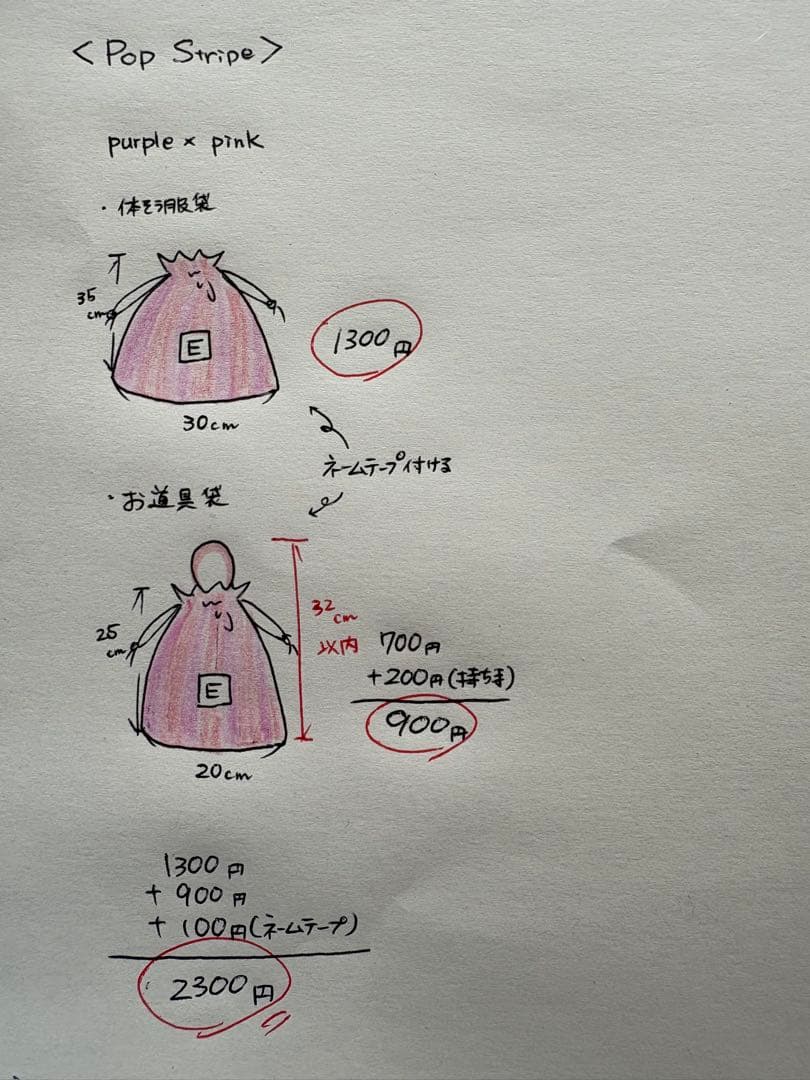 <Pop Stripe>
purple × pink
・体そう服袋
35
cm
E
30cm
1300円
ネームテープ付ける
・お道具袋
25
cm
E
20cm
32cm
以内
700円
+200円(持ち手)
900円
1300円
+ 900円
+ 100円(ネームテープ)
2300円